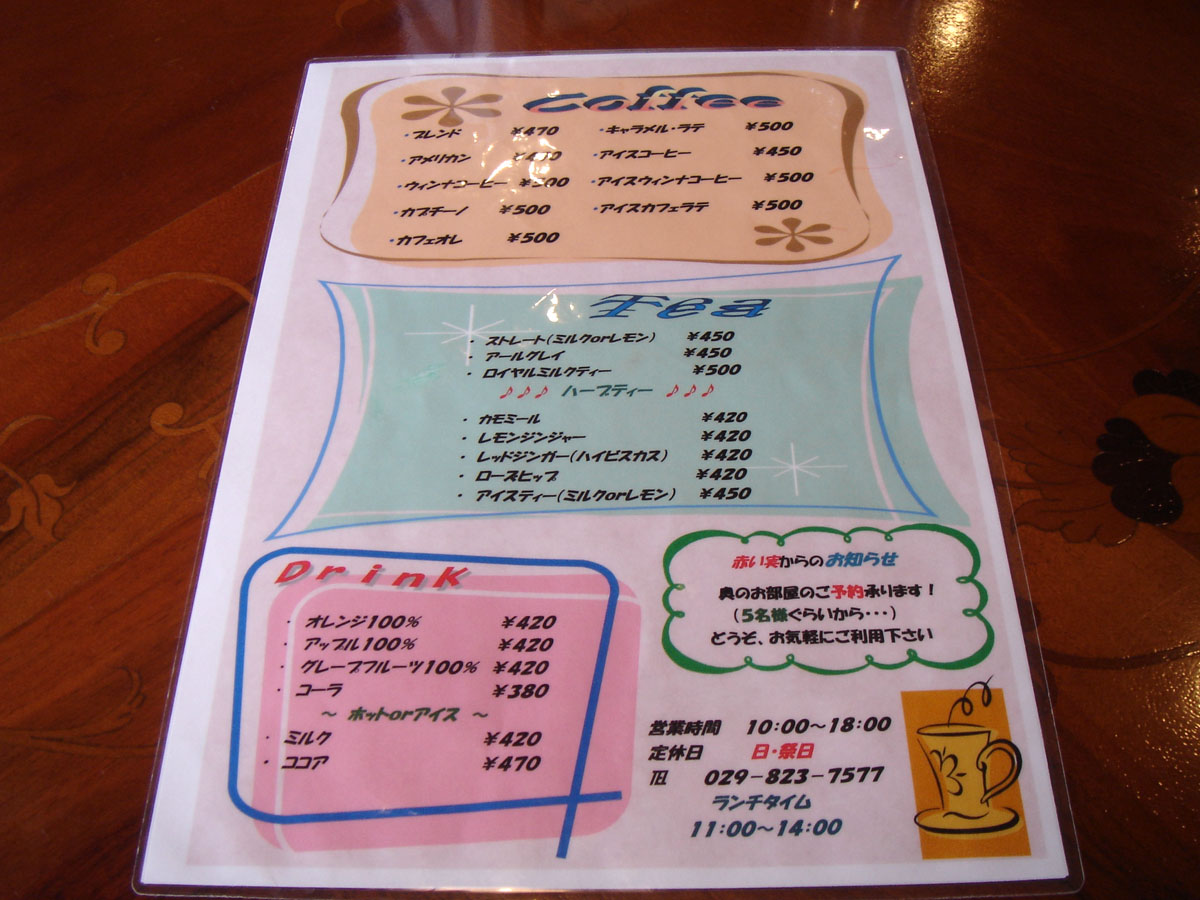 Coffee
・ブレンド ¥470
・アメリカン ¥470
・ウィンナコーヒー ¥500
・カプチーノ ¥500
・カフェオレ ¥500
・キャラメル・ラテ ¥500
・アイスコーヒー ¥450
・アイスウィンナコーヒー ¥500
・アイスカフェラテ ¥500
Tea
・ストレート(ミルクorレモン) ¥450
・アールグレイ ¥450
・ロイヤルミルクティー ¥500
♪♪♪ ハーブティー ♪♪♪
・カモミール ¥420
・レモンジンジャー ¥420
・レッドジンガー(ハイビスカス) ¥420
・ローズヒップ ¥420
・アイスティー(ミルクorレモン) ¥450
Drink
・オレンジ100% ¥420
・アップル100% ¥420
・グレープフルーツ100% ¥420
・コーラ ¥380
～ ホットorアイス ～
・ミルク ¥420
・ココア ¥470
赤い実からのお知らせ
奥のお部屋のご予約承ります！
(5名様ぐらいから・・・)
どうぞ、お気軽にご利用下さい
営業時間 10:00～18:00
定休日 日・祭日
℡ 029－823－7577
ランチタイム
11:00～14:00